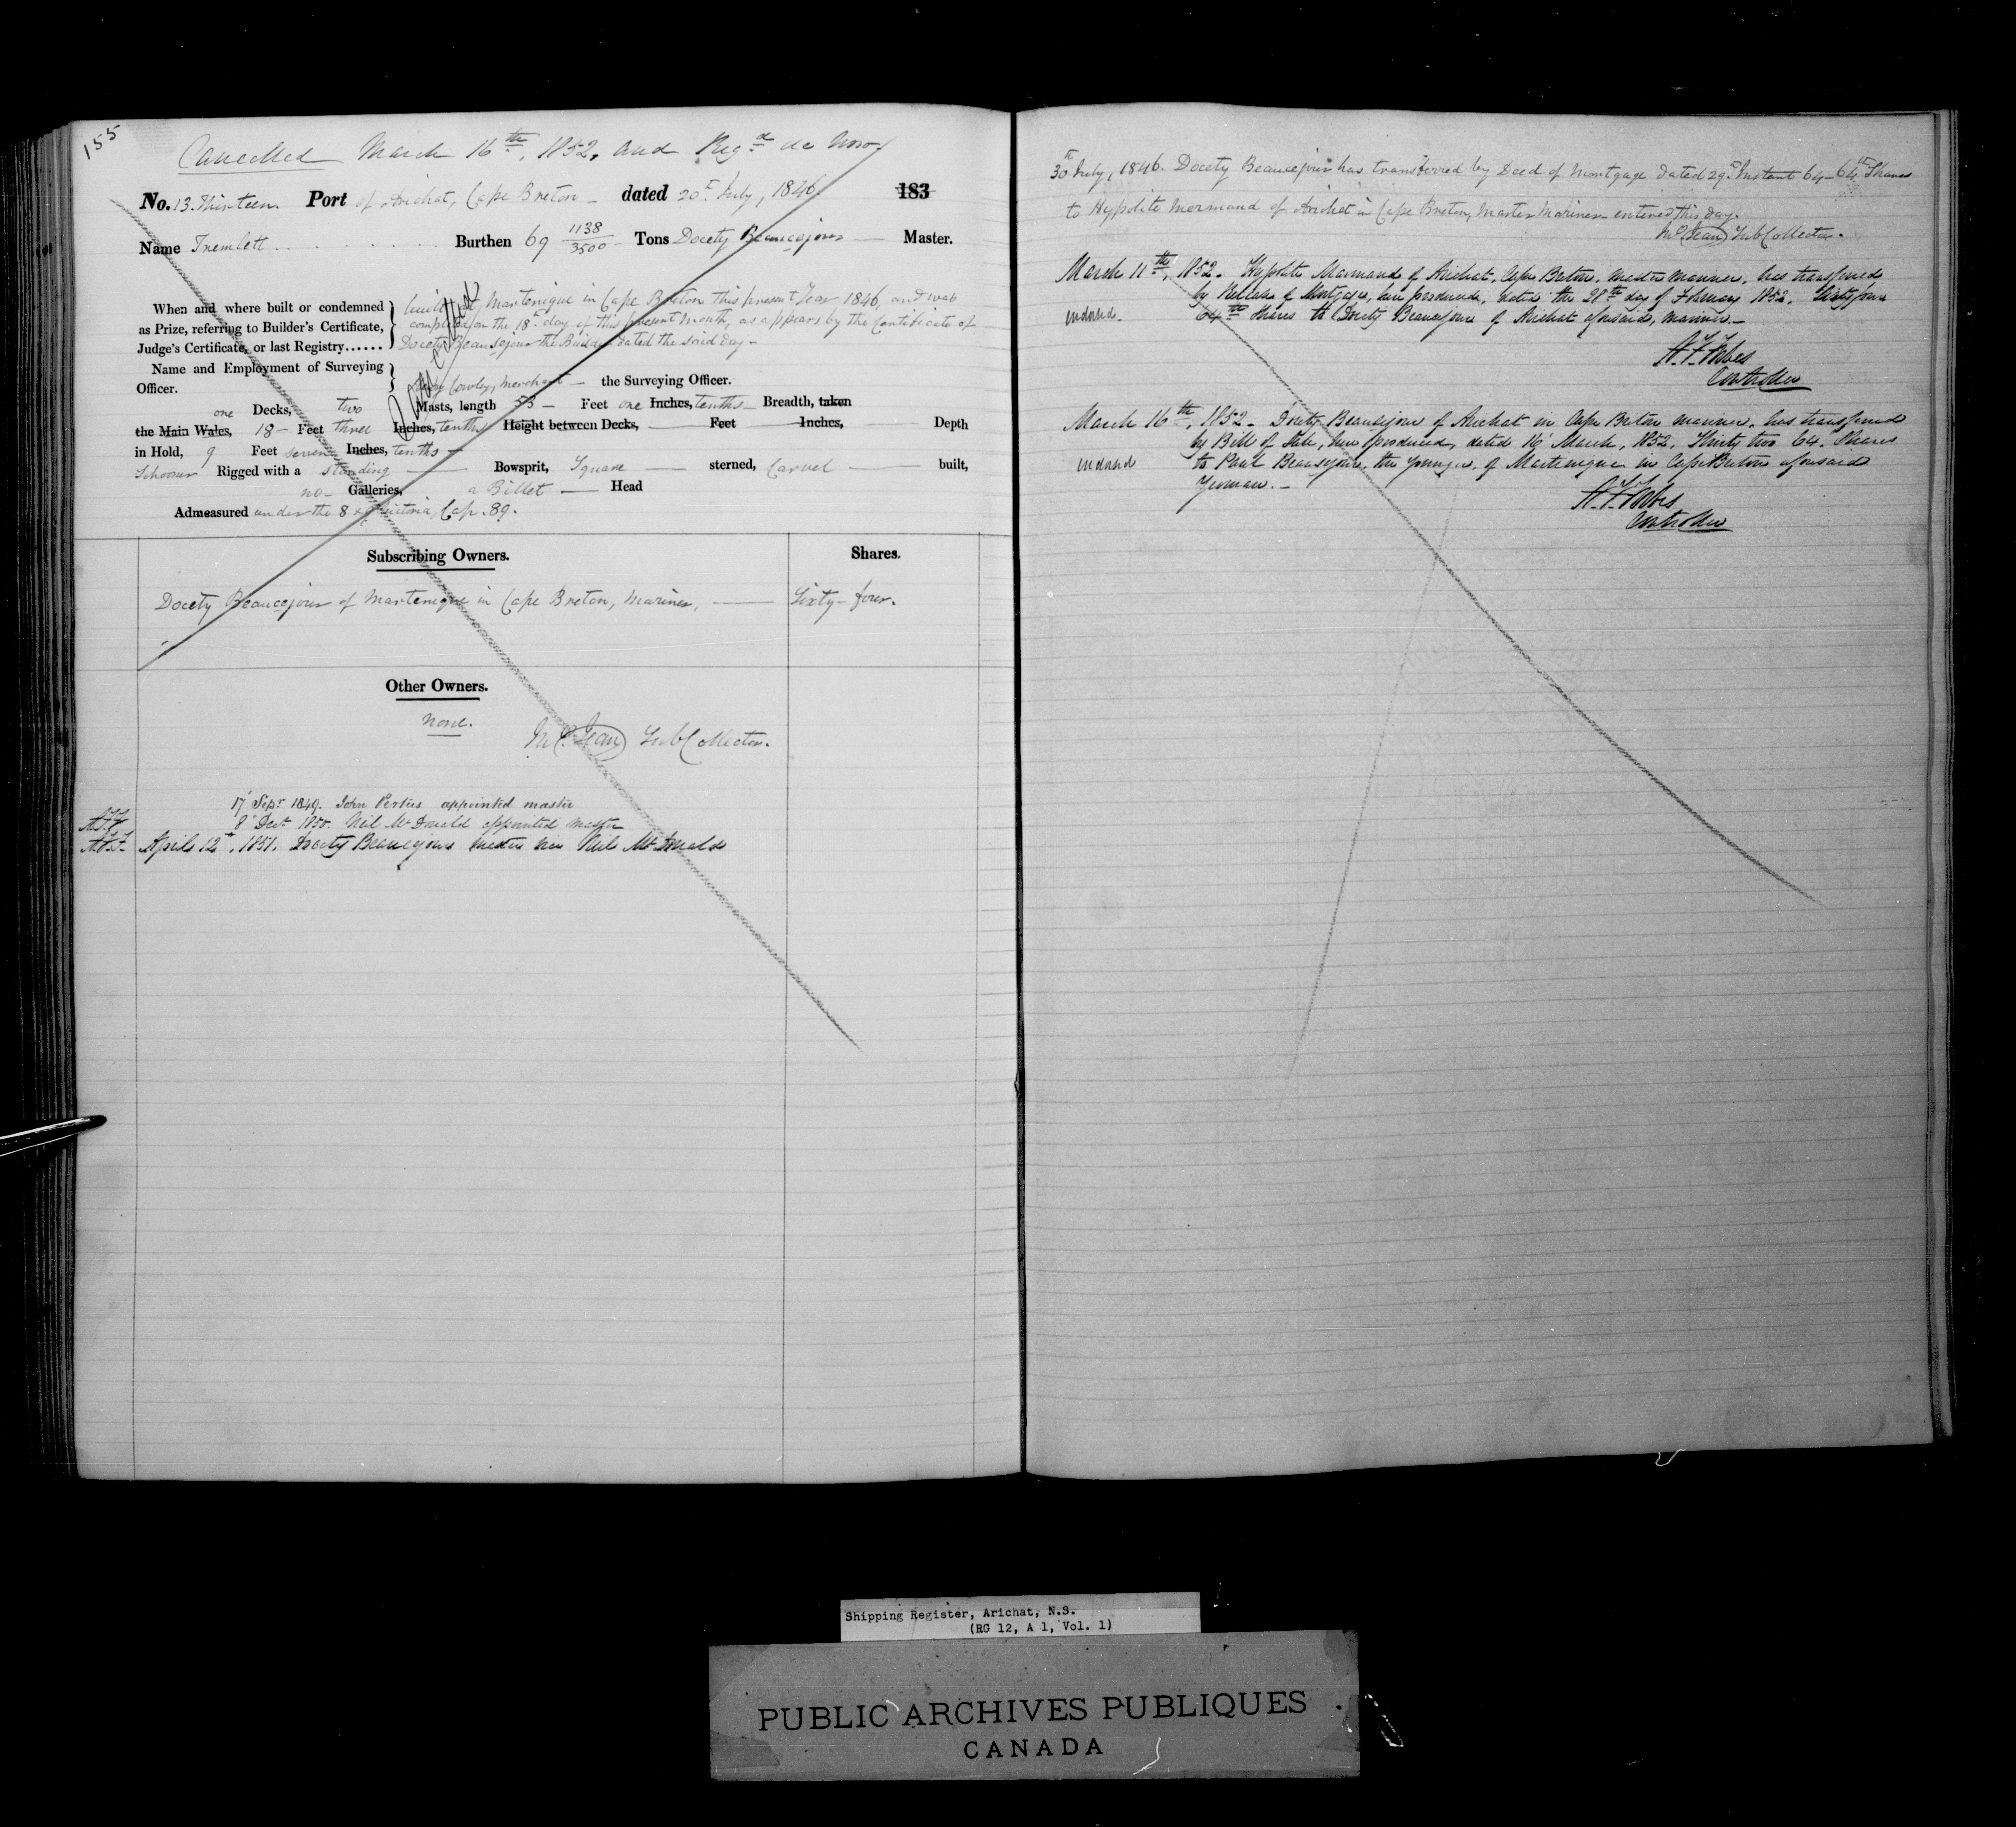 155
Cancelled March 16th, 1852, and Regd de Novo
No. 13. Thirteen. Port of Arichat, Cape Breton - dated 20th July, 1846 183
Name Tremlett Burthen 69 1138/3500 Tons Docety Beaucejour Master.
When and where built or condemned as Prize, referring to Builder's Certificate, Judge's Certificate, or last Registry......
built at Martenique in Cape Breton this present Year 1846, and was
completed on the 18th day of this present month, as appears by the Certificate of
Docety Beausejour the Builder dated the said day -
Name and Employment of Surveying Officer.
Cowley, Merchant - the Surveying Officer.
one Decks, two Masts, length 53 - Feet one Inches, tenths - Breadth, taken
the Main Wales, 18 - Feet three Inches, tenths Height between Decks, Feet Inches, Depth
in Hold, 9 Feet seven Inches, tenths -
Schooner Rigged with a standing Bowsprit, Square sterned, Carvel built,
no - Galleries, a Billet - Head
Admeasured under the 8 & 9 Victoria, Cap. 89.
Subscribing Owners. Shares.
Docety Beaucejour of Martenique in Cape Breton, Mariner, Sixty-four.
Other Owners.
none.
McC. Jean SubCollector.
17 Sepr 1849. John Perties appointed master
8th Decr 1850. Neil McDonald appointed master
April 12th, 1851. Docety Beaucejour master vice Neil McDonald
30th July, 1846. Docety Beaucejour has transferred by Deed of Mortgage dated 29th Instant 64-64th Shares
to Hypolite Mermaud of Arichat in Cape Breton, Master Mariner - entered this day.
Jean SubCollector.
March 11th, 1852. Hypolite Marmaud of Arichat, Cape Breton, master mariner, has transferred
by Release of Mortgage, here produced, dated the 28th day of February 1852. Sixty four
indorsed. 64th Shares to Docity Beaucejour of Arichat aforesaid, mariner. -
Forbes
Controller
March 16th, 1852 - Docity Beausejour of Arichat in Cape Breton mariner, has transferred
by Bill of Sale, here produced, dated 16 March, 1852, Thirty two 64. Shares
indorsed to Paul Beausejour, the younger, of Martenique in Cape Breton aforesaid
Yeoman. -
Forbes
Controller
Shipping Register, Arichat, N.S.
(RG 12, A 1, Vol. 1)
PUBLIC ARCHIVES PUBLIQUES
CANADA